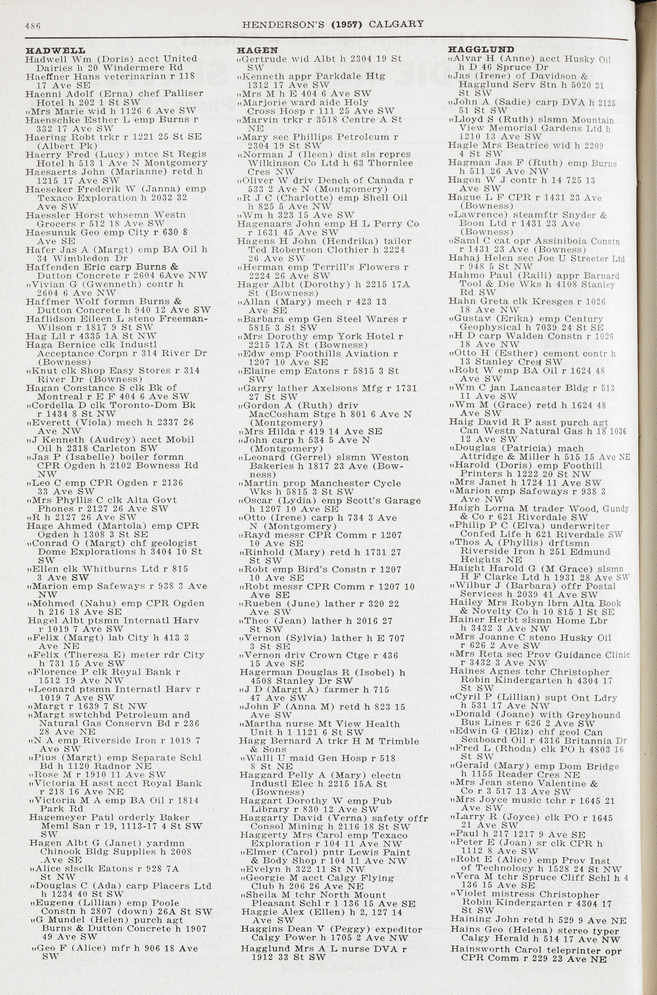 486
HENDERSON'S (1957) CALGARY
HADWELL
Hadwell Wm (Doris) acct United
Dairies h 20 Windermere Rd
Haeffner Hans veterinarian r 118
17 Ave SE
Haenni Adolf (Erna) chef Palliser
Hotel h 202 1 St SW
„Mrs Marie wid h 1126 6 Ave SW
Haenschke Esther L emp Burns r
332 17 Ave SW
Haering Robt trkr r 1221 25 St SE
(Albert Pk)
Haerry Fred (Lucy) mtce St Regis
Hotel h 513 1 Ave N Montgomery
Haesaerts John (Marianne) retd h
1215 17 Ave SW
Haeseker Frederik W (Janna) emp
Texaco Exploration h 2032 32
Ave SW
Haessler Horst whsemn Westn
Grocers r 512 18 Ave SW
Haesunuk Geo emp City r 630 8
Ave SE
Hafer Jas A (Margt) emp BA Oil h
34 Wimbledon Dr
Haffenden Eric carp Burns &
Dutton Concrete r 2604 6Ave NW
„Vivian G (Gwenneth) contr h
2604 6 Ave NW
Haffmer Wolf formn Burns &
Dutton Concrete h 940 12 Ave SW
Haflidson Eileen L steno Freeman-
Wilson r 1817 9 St SW
Hag Lil r 4335 1A St NW
Haga Bernice clk Industl
Acceptance Corpn r 314 River Dr
(Bowness)
„Knut clk Shop Easy Stores r 314
River Dr (Bowness)
Hagan Constance S clk Bk of
Montreal r E F 404 6 Ave SW
„Cordella D clk Toronto-Dom Bk
r 1434 8 St NW
„Everett (Viola) mech h 2337 26
Ave NW
„J Kenneth (Audrey) acct Mobil
Oil h 2318 Carleton SW
„Jas P (Isabelle) boiler formn
CPR Ogden h 2102 Bowness Rd
NW
„Leo C emp CPR Ogden r 2136
33 Ave SW
„Mrs Phyllis C clk Alta Govt
Phones r 2127 26 Ave SW
„R h 2127 26 Ave SW
Hage Ahmed (Martola) emp CPR
Ogden h 1308 3 St SE
„Conrad O (Margt) chf geologist
Dome Explorations h 3404 10 St
SW
„Ellen clk Whitburns Ltd r 815
3 Ave SW
„Marion emp Safeways r 938 3 Ave
NW
„Mohmed (Nahu) emp CPR Ogden
h 216 18 Ave SE
Hagel Albt ptsmn Internatl Harv
r 1019 7 Ave SW
„Felix (Margt) lab City h 413 3
Ave NE
„Felix (Theresa E) meter rdr City
h 731 15 Ave SW
„Florence P clk Royal Bank r
1512 19 Ave NW
„Leonard ptsmn Internatl Harv r
1019 7 Ave SW
„Margt r 1639 7 St NW
„Margt swtchbd Petroleum and
Natural Gas Conservn Bd r 236
28 Ave NE
„N A emp Riverside Iron r 1019 7
Ave SW
„Pius (Margt) emp Separate Schl
Bd h 1120 Radnor NE
„Rose M r 1910 11 Ave SW
„Victoria H asst acct Royal Bank
r 218 16 Ave NE
„Victoria M A emp BA Oil r 1814
Park Rd
Hagemeyer Paul orderly Baker
Meml San r 19, 1113-17 4 St SW
SW
Hagen Albt G (Janet) yardmn
Chinook Bldg Supplies h 2008
.Ave SE
„Alice slsclk Eatons r 928 7A
St NW
„Douglas C (Ada) carp Placers Ltd
h 1234 40 St SW
„Eugene (Lillian) emp Poole
Constn h 2807 (down) 26A St SW
„G Mundel (Helen) purch agt
Burns & Dutton Concrete h 1907
49 Ave SW
„Geo F (Alice) mfr h 906 18 Ave
SW
HAGEN
„Gertrude wid Albt h 2304 19 St
SW
„Kenneth appr Parkdale Htg
1312 17 Ave SW
„Mrs M h E 404 6 Ave SW
„Marjorie ward aide Holy
Cross Hosp r 111 25 Ave SW
„Marvin trkr r 3518 Centre A St
NE
„Mary sec Phillips Petroleum r
2304 19 St SW
„Norman J (Ileen) dist sls repres
Wilkinson Co Ltd h 63 Thornlee
Cres NW
„Oliver W driv Dench of Canada r
533 2 Ave N (Montgomery)
„R J C (Charlotte) emp Shell Oil
h 825 5 Ave NW
„Wm h 323 15 Ave SW
Hagenaars John emp H L Perry Co
r 1631 45 Ave SW
Hagens H John (Hendrika) tailor
Ted Robertson Clothier h 2224
26 Ave SW
„Herman emp Terrill's Flowers r
2224 26 Ave SW
Hager Albt (Dorothy) h 2215 17A
St (Bowness)
„Allan (Mary) mech r 423 13
Ave SE
„Barbara emp Gen Steel Wares r
5815 3 St SW
„Mrs Dorothy emp York Hotel r
2215 17A St (Bowness)
„Edw emp Foothills Aviation r
1207 10 Ave SE
„Elaine emp Eatons r 5815 3 St
SW
„Garry lather Axelsons Mfg r 1731
27 St SW
„Gordon A (Ruth) driv
MacCosham Stge h 801 6 Ave N
(Montgomery)
„Mrs Hilda r 419 14 Ave SE
„John carp h 534 5 Ave N
(Montgomery)
„Leonard (Gerrel) slsmn Weston
Bakeries h 1817 23 Ave (Bow-
ness)
„Martin prop Manchester Cycle
Wks h 5815 3 St SW
„Oscar (Lydia) emp Scott's Garage
h 1207 10 Ave SE
„Otto (Irene) carp h 734 3 Ave
N (Montgomery)
„Rayd messr CPR Comm r 1207
10 Ave SE
„Rinhold (Mary) retd h 1731 27
St SW
„Robt emp Bird's Constn r 1207
10 Ave SE
„Robt messr CPR Comm r 1207 10
Ave SE
„Rueben (June) lather r 320 22
Ave SW
„Theo (Jean) lather h 2016 27
St SW
„Vernon (Sylvia) lather h E 707
3 St SE
„Vernon driv Crown Ctge r 436
15 Ave SE
Hagerman Douglas R (Isobel) h
4508 Stanley Dr SW
„J D (Margt A) farmer h 715
47 Ave SW
„John F (Anna M) retd h 823 15
Ave SW
„Martha nurse Mt View Health
Unit h 1 1121 6 St SW
Hagg Bernard A trkr H M Trimble
& Sons
„Walli U maid Gen Hosp r 518
8 St NE
Haggard Pelly A (Mary) electn
Industl Elec h 2215 15A St
(Bowness)
Haggart Dorothy W emp Pub
Library r 830 12 Ave SW
Haggarty David (Verna) safety offr
Consol Mining h 2116 18 St SW
Haggerty Mrs Carol emp Texaco
Exploration r 104 11 Ave NW
„Elmer (Carol) pntr Lewis Paint
& Body Shop r 104 11 Ave NW
„Evelyn h 322 11 St NW
„Georgie M acct Calgy Flying
Club h 206 26 Ave NE
„Sheila M tchr North Mount
Pleasant Schl r 1 136 15 Ave SE
Haggie Alex (Ellen) h 2, 127 14
Ave SW
Haggins Dean V (Peggy) expeditor
Calgy Power h 1705 2 Ave NW
Hagglund Mrs A L nurse DVA r
1912 33 St SW
HAGGLUND
„Alvar H (Anne) acct Husky Oil
h D 46 Spruce Dr
„Jas (Irene) of Davidson &
Hagglund Serv Stn h 5020 21
St SW
„John A (Sadie) carp DVA h 2125
51 St SW
„Lloyd S (Ruth) slsmn Mountain
View Memorial Gardens Ltd h
1210 13 Ave SW
Hagle Mrs Beatrice wid h 2209
4 St SW
Hagman Jas F (Ruth) emp Burns
h 511 26 Ave NW
Hagon W J contr h 14 725 13
Ave SW
Hague L F CPR r 1431 23 Ave
(Bowness)
„Lawrence) steamftr Snyder &
Boon Ltd r 1431 23 Ave
(Bowness)
„Saml C cat opr Assiniboia Constn
r 1431 23 Ave (Bowness)
Hahaj Helen sec Joe U Streeter Ltd
r 948 5 St NW
Hahmo Paul (Raili) appr Barnard
Tool & Die Wks h 4108 Stanley
Rd SW
Hahn Greta clk Kresges r 1026
18 Ave NW
„Gustav (Erika) emp Century
Geophysical h 7039 24 St SE
„H D carp Walden Constn r 1026
18 Ave NW
„Otto H (Esther) cement contr h
13 Stanley Cres SW
„Robt W emp BA Oil r 1624 48
Ave SW
„Wm C jan Lancaster Bldg r 513
11 Ave SW
„Wm M (Grace) retd h 1624 48
Ave SW
Haig David R P asst purch agt
Can Westn Natural Gas h 18 1036
12 Ave SW
„Douglas (Patricia) mach
Attridge & Miller h 515 15 Ave NE
„Harold (Doris) emp Foothill
Printers h 1222 20 St NW
„Mrs Janet h 1724 11 Ave SW
„Marion emp Safeways r 938 3
Ave NW
Haigh Lorna M trader Wood, Gundy
& Co r 621 Riverdale SW
„Philip P C (Elva) underwriter
Confed Life h 621 Riverdale SW
„Thos A, (Phyllis) drftsmn
Riverside Iron h 251 Edmund
Heights NE
Haight Harold G (M Grace) slsmn
H F Clarke Ltd h 1931 28 Ave SW
„Wilbur J (Barbara) offr Postal
Services h 2039 41 Ave SW
Hailey Mrs Robyn lbrn Alta Book
& Novelty Co h 10 815 1 St SE
Hainer Herbt slsmn Home Lbr
h 3432 3 Ave NW
„Mrs Joanne C steno Husky Oil
r 626 2 Ave SW
„Mrs Reta sec Prov Guidance Clinic
r 3432 3 Ave NW
Haines Agnes tchr Christopher
Robin Kindergarten h 4304 17
St SW
„Cyril P (Lillian) supt Ont Ldry
h 531 17 Ave NW
„Donald (Joane) with Greyhound
Bus Lines r 626 2 Ave SW
„Edwin G (Eliz) chf geol Can
Seaboard Oil r 4316 Britannia Dr
„Fred L (Rhoda) clk PO h 4803 16
St SW
„Gerald (Mary) emp Dom Bridge
h 1155 Reader Cres NE
„Mrs Jean steno Valentine &
Co r 3 517 13 Ave SW
„Mrs Joyce music tchr r 1645 21
Ave SW
„Larry R (Joyce) clk PO r 1645
21 Ave SW
„Paul h 217 1217 9 Ave SE
„Peter E (Joan) sr clk CPR h
1112 8 Ave SW
„Robt E (Alice) emp Prov Inst
of Technology h 1528 24 St NW
„Vera M tchr Spruce Cliff Schl h 4
136 15 Ave SE
„Violet mistress Christopher
Robin Kindergarten r 4304 17
St SW
Haining John retd h 529 9 Ave NE
Hains Geo (Helena) stereo typer
Calgy Herald h 514 17 Ave NW
Hainsworth Carol teleprinter opr
CPR Comm r 229 23 Ave NE